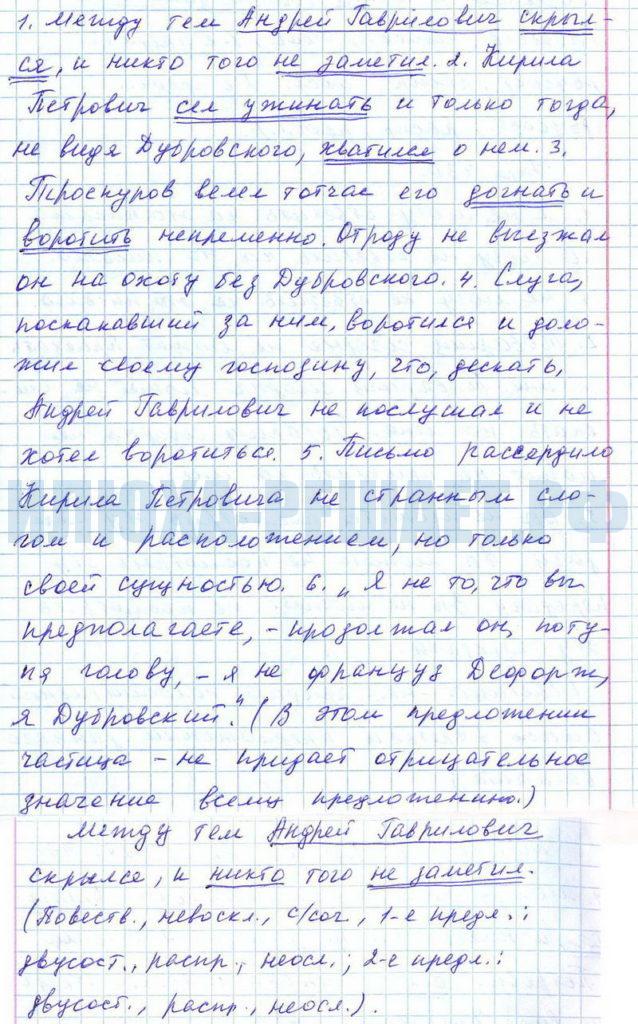 1. Между тем Андрей Гаврилович скрыл-
ся, и никто того не заметил. 2. Кирила
Петрович сел ужинать и только тогда,
не видя Дубровского, хватился о нем. 3.
Троекуров велел тотчас его догнать и
воротить непременно. Отроду не выезжал
он на охоту без Дубровского. 4. Слуга,
поскакавший за ним, воротился и доло-
жил своему господину, что, дескать,
Андрей Гаврилович не послушал и не
хотел воротиться. 5. Письмо рассердило
Кирила Петровича не странным сло-
гом и расположением, но только
своей сущностью. 6. „Я не то, что вы
предполагаете, - продолжал он, поту-
пя голову, - я не француз Дефорж,
я Дубровский." (В этом предложении
частица - не придает отрицательное
значение всему предложению.)
Между тем Андрей Гаврилович
скрылся, и никто того не заметил.
(Повеств., невоскл., с/соч, 1-е предл.:
двусост., распр., неосл.; 2-е предл.:
двусост., распр., неосл.).